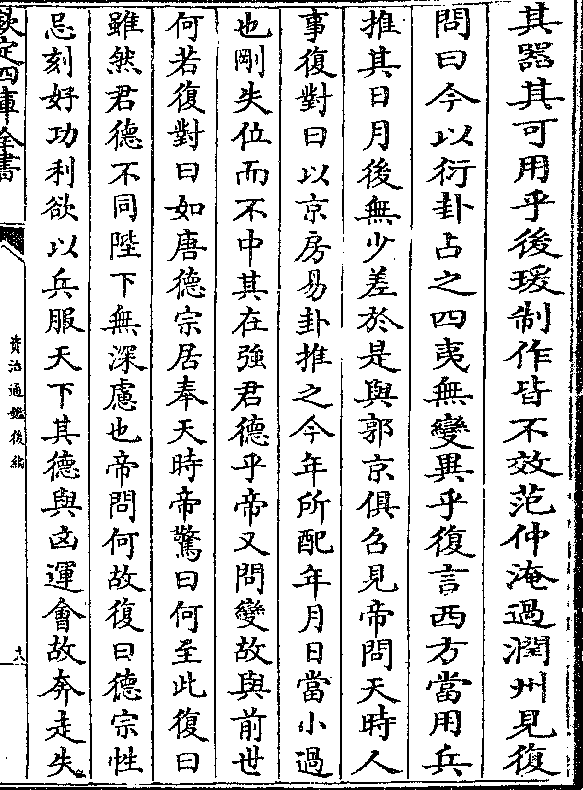 其器其可用乎後瑗制作皆不效范仲淹過潤州見復
問曰今以衍卦占之四夷無變異乎復言西方當用兵
推其日月後無少差於是與郭京俱召見帝問天時人
事復對曰以京房易卦推之今年所配年月日當小過
也剛失位而不中其在強君德乎帝又問變故與前世
何若復對曰如唐德宗居奉天時帝驚曰何至此復曰
雖然君德不同陛下無深慮也帝問何故復曰德宗性
忌刻好功利欲以兵服天下其德與凶運會故奔走失
欽定四庫全書
資治通鑑後編